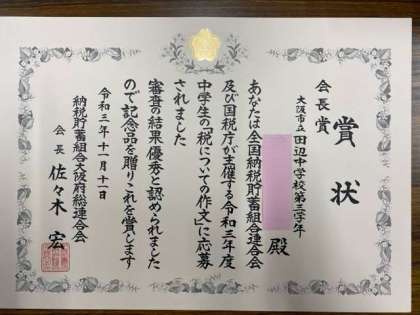 賞状
会長賞
大阪市立田辺中学校第三学年
殿
あなたは全国納税貯蓄組合連合会
及び国税庁が主催する令和三年度
中学生の「税についての作文」に応募
されました
審査の結果優秀と認められました
ので記念品を贈りこれを賞します
令和三年十一月十一日
納税貯蓄組合大阪府総連合会
会長 佐々木宏